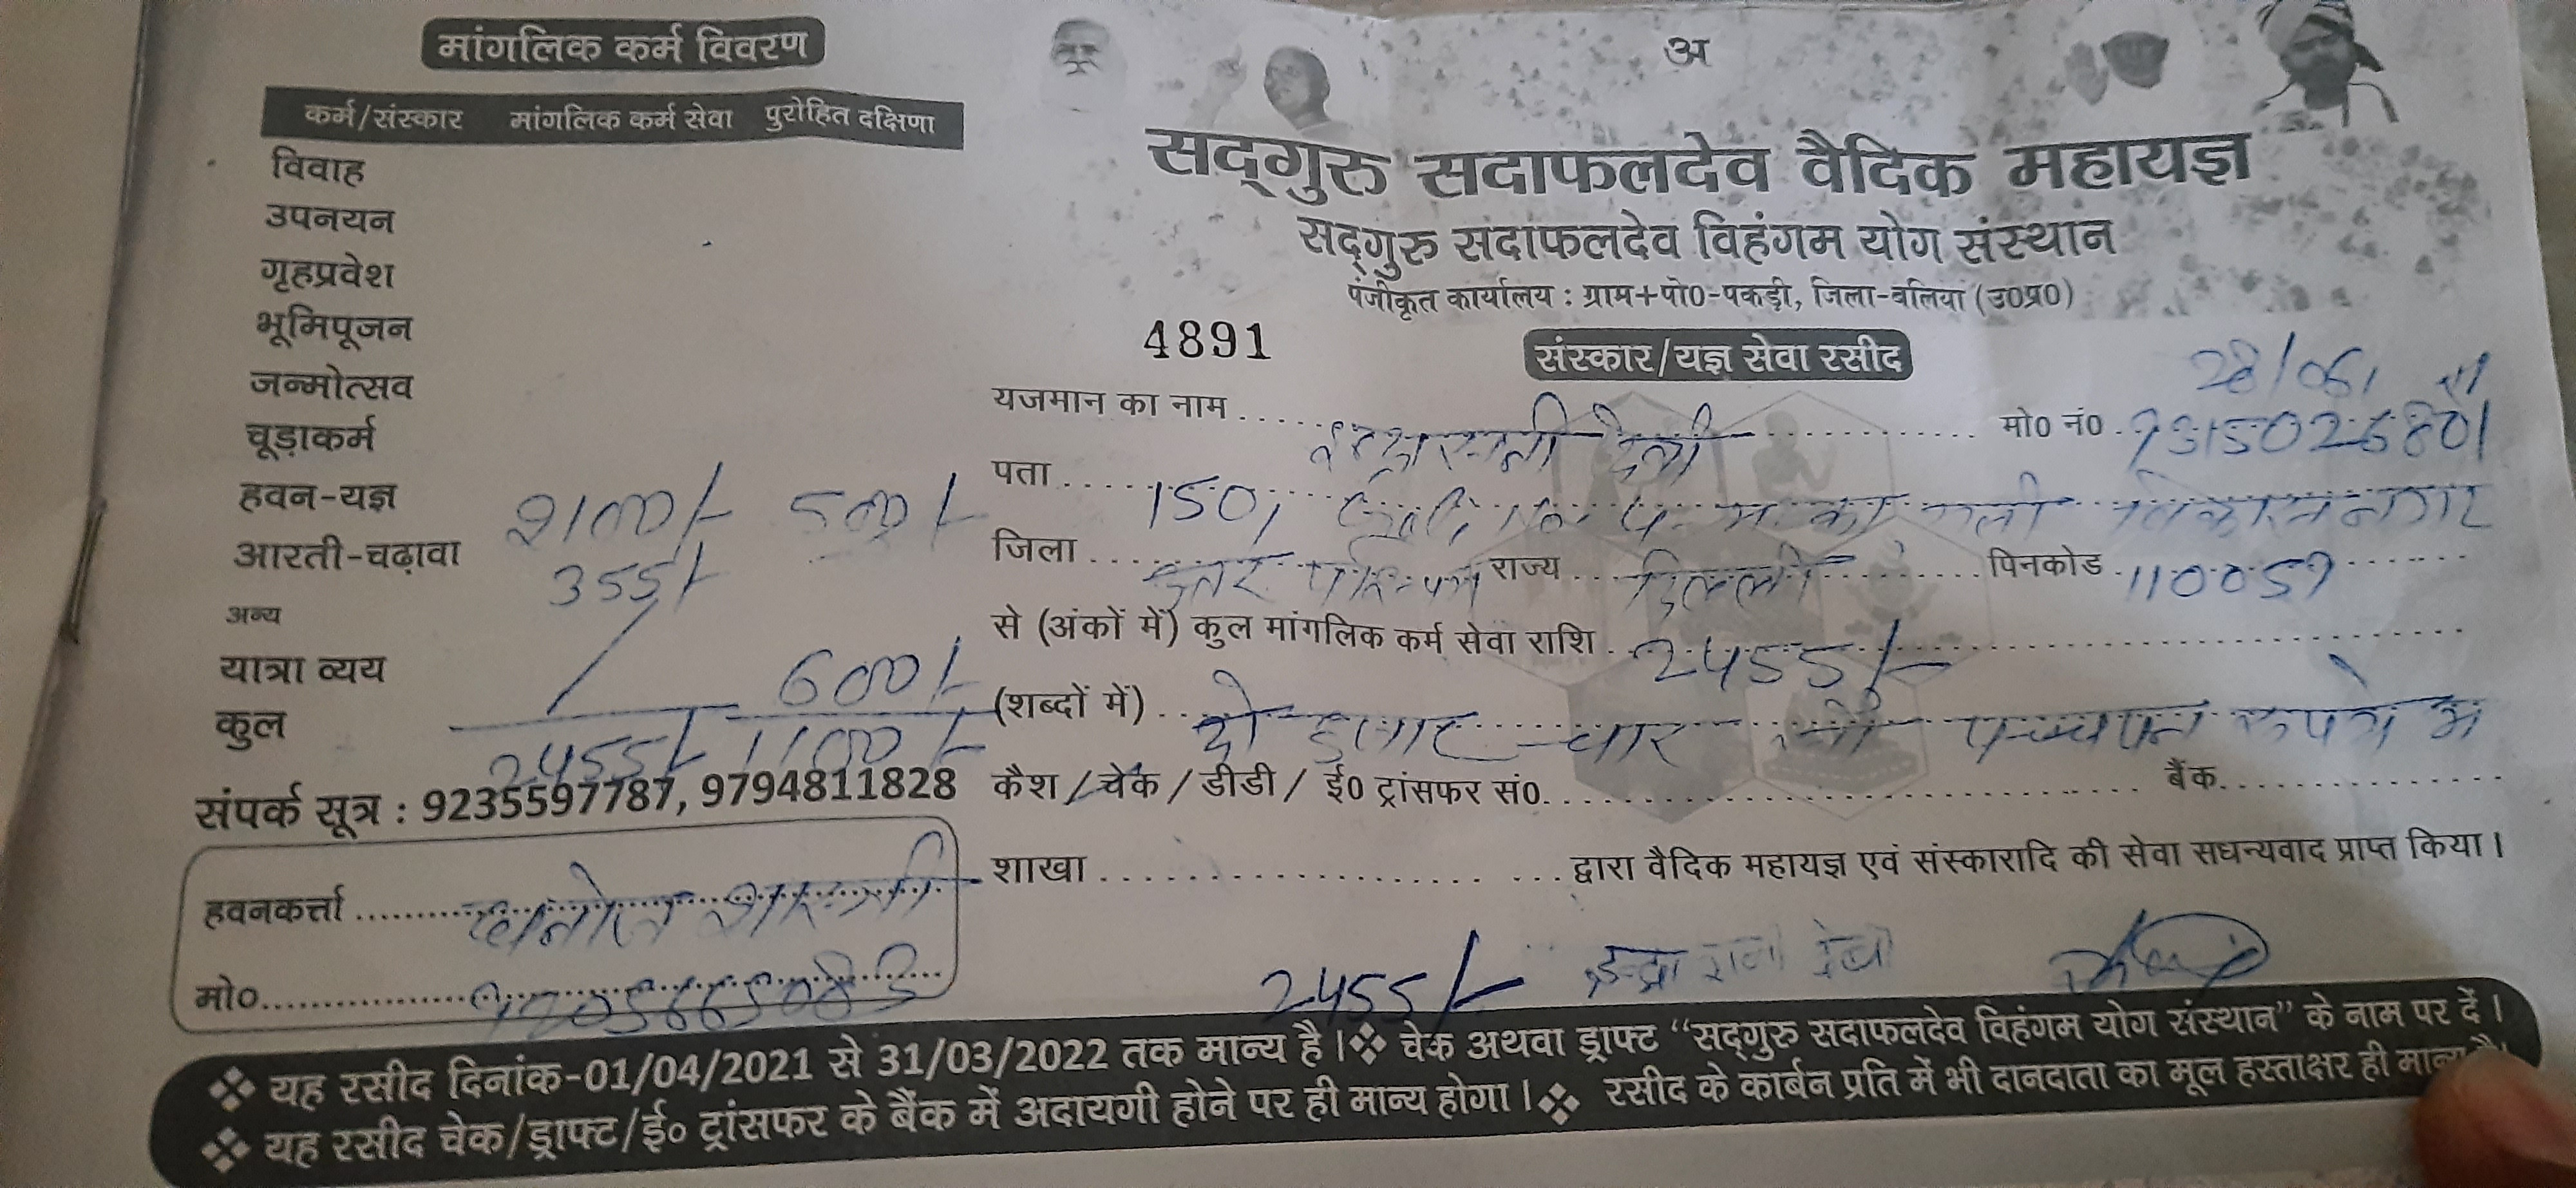 मांगलिक कर्म विवरण
कर्म/संस्कार मांगलिक कर्म सेवा पुरोहित दक्षिणा
विवाह
उपनयन
गृहप्रवेश
भूमिपूजन
जन्मोत्सव
चूड़ाकर्म
हवन-यज्ञ 2100/- 500/-
आरती-चढ़ावा 355/-
अन्य
यात्रा व्यय 600/-
कुल 2455/- 1100/-
संपर्क सूत्र : 9235597787, 9794811828
हवनकर्त्ता
मो०
अ
सद्गुरु सदाफलदेव वैदिक महायज्ञ
सद्गुरु सदाफलदेव विहंगम योग संस्थान
पंजीकृत कार्यालय : ग्राम+पो0-पकड़ी, जिला-बलिया (उ0प्र0)
4891
संस्कार/यज्ञ सेवा रसीद
28/06/
यजमान का नाम देवी मो0 नं0
पता 150, गली विकास नगर
जिला राज्य दिल्ली पिनकोड 110059
से (अंकों में) कुल मांगलिक कर्म सेवा राशि 2455/-
(शब्दों में) दो हजार चार सौ पच्चपन रूपये
कैश / चेक / डीडी / ई0 ट्रांसफर सं0. बैंक
शाखा द्वारा वैदिक महायज्ञ एवं संस्कारादि की सेवा सधन्यवाद प्राप्त किया।
2455/- देवी
❖ यह रसीद दिनांक-01/04/2021 से 31/03/2022 तक मान्य है।❖ चेक अथवा ड्राफ्ट “सद्गुरु सदाफलदेव विहंगम योग संस्थान” के नाम पर दें।
❖ यह रसीद चेक/ड्राफ्ट/ई० ट्रांसफर के बैंक में अदायगी होने पर ही मान्य होगा।❖ रसीद के कार्बन प्रति में भी दानदाता का मूल हस्ताक्षर ही मान्य है।